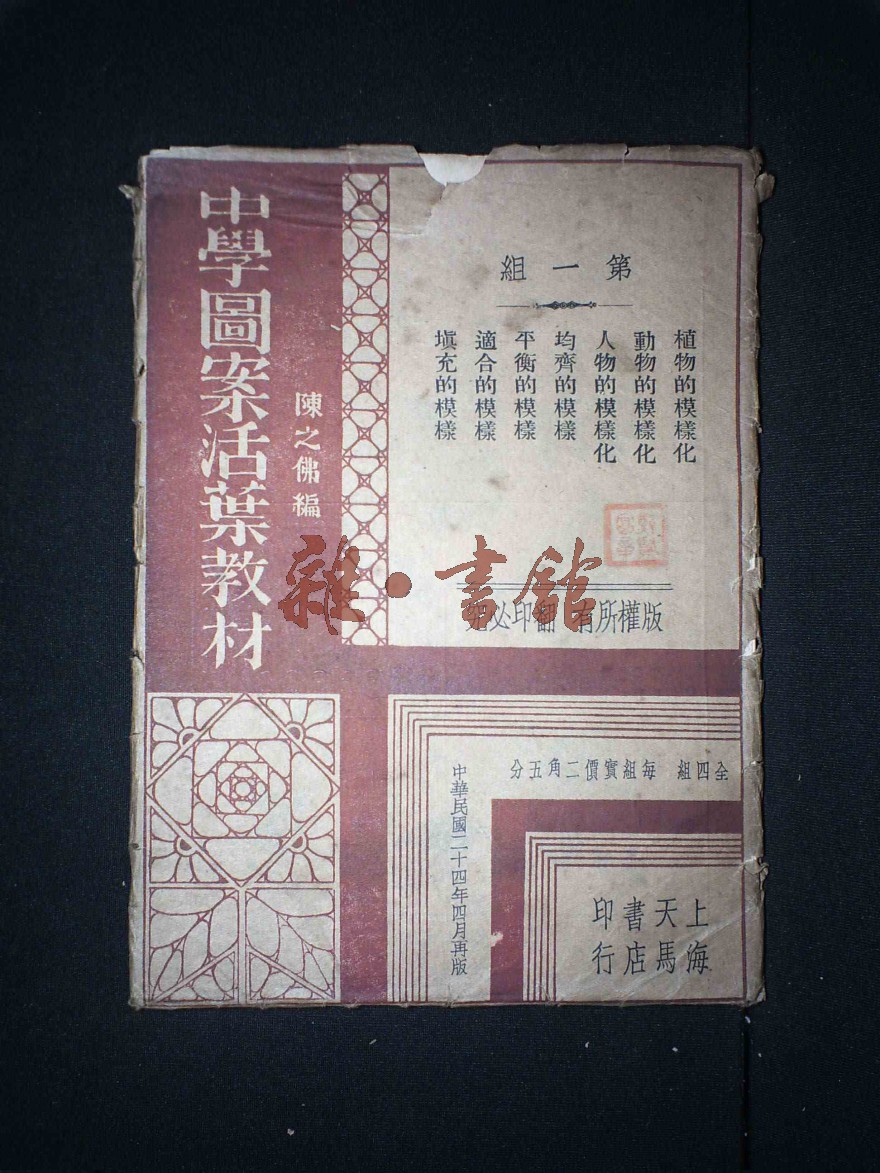 中學圖案活葉教材
陳之佛編
第一組
植物的模樣化
動物的模樣化
人物的模樣化
均齊的模樣
平衡的模樣
適合的模樣
塡充的模樣
版權所有 翻印必究
全四組 每組實價二角五分
中華民國二十四年四月再版
上海
天馬
書店
印行
雜·書館